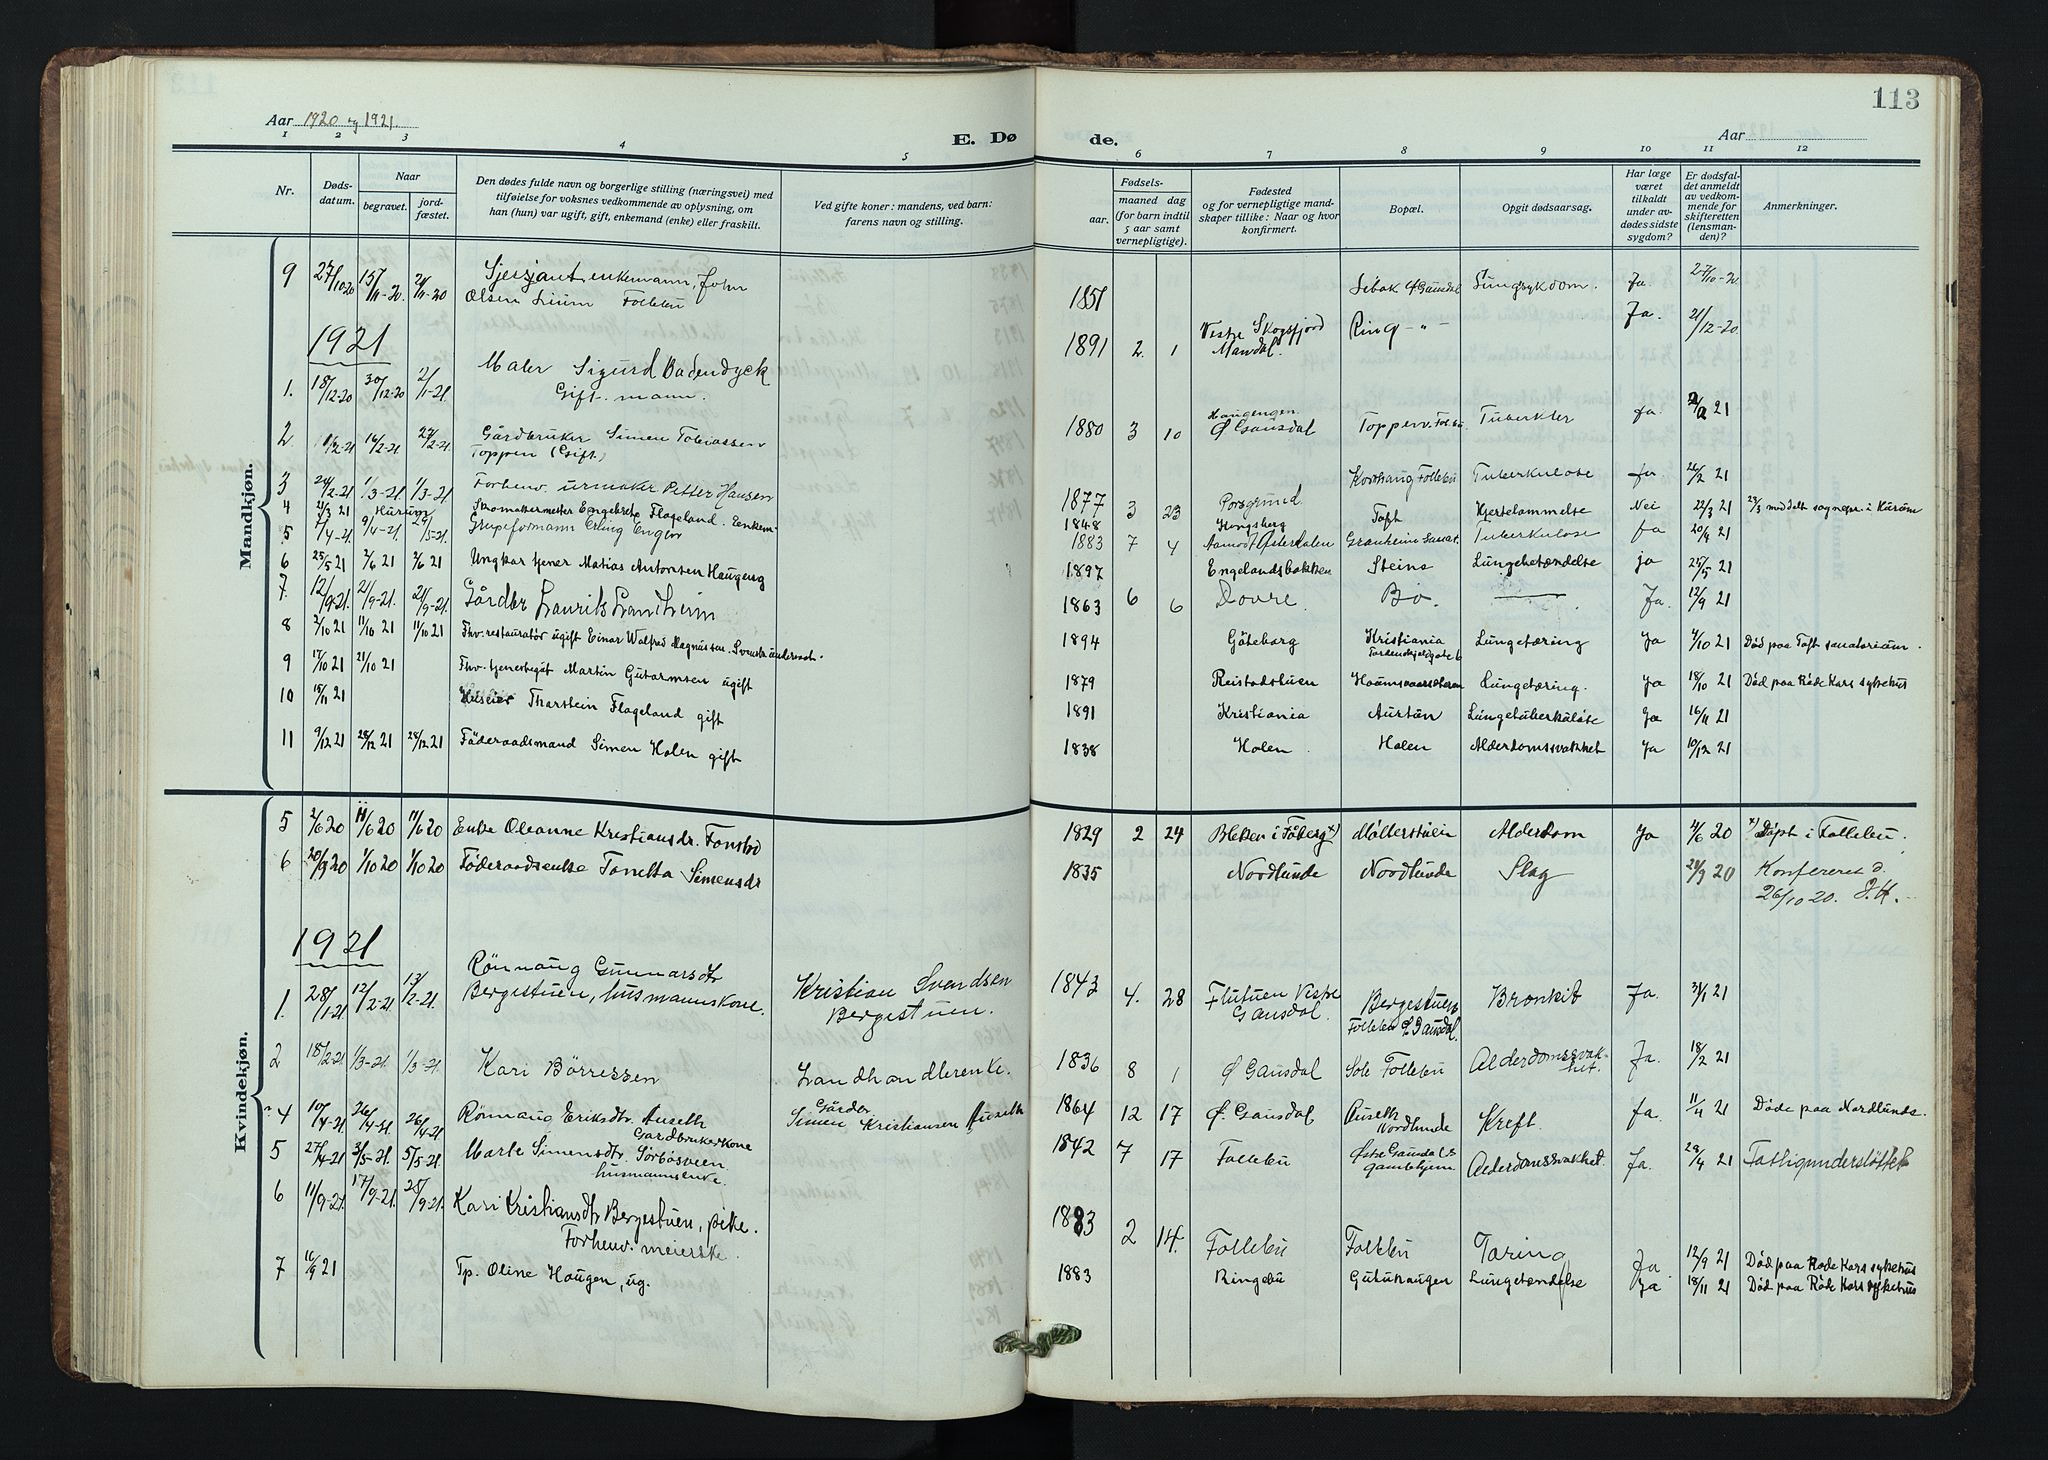 113
Aar 1920 og 1921.
E. Dø
de.
Aar
1 2 3 4 5
6 7 8 9 10 11 12
Nr.
Døds-
datum.
Naar
begravet.
jord-
fæstet.
Den dødes fulde navn og borgerlige stilling (næringsvei) med
tilføielse for voksnes vedkommende av oplysning, om
han (hun) var ugift, gift, enkemand (enke) eller fraskilt.
Ved gifte koner: mandens, ved barn:
farens navn og stilling.
Fødsels-
aar.
maaned dag
(for barn indtil
5 aar samt
vernepligtige).
Fødested
og for vernepligtige mand-
skaper tillike: Naar og hvor
konfirmert.
Bopæl.
Opgit dødsaarsag.
Har læge
været
tilkaldt
under av-
dødes sidste
sygdom?
Er dødsfal-
det anmeldt
av vedkom-
mende for
skifteretten
(lensman-
den)?
Anmerkninger.
Mandkjøn.
9 27/10 20 15/11-20. 21/11-20 Sjersjant, enkemann, John
Olsen Lium Follebu
1851 Sibak Ø Gausdal Lungsykdom. Ja. 27/10-20.
1921
1. 18/12-20 30/12-20 2/1-21. Maler Sigurd Bödendyck
Gift. mann.
1891 2 1 Vestre Skogsfjord
Mandal. Ring -"- Ja. 21/12-20
2. 11/2-21 16/2-21 27/2-21. Gårdbruker Simen Tobiassen
Toppen (Gift.)
1880 3 10 Haugengen
Ø Gausdal Toppen. Follebu Tuberkler Ja. 21
3 24/2-21 1/3-21. 1/3-21 Forhenv. urmaker Petter Hansen
1877 3 23 Porsgrund Korshaug Follebu Tuberkulose Ja. 26/2 21
4 21/3 21 Hurum Skomakermester Engebret Flageland. Enkem.
1848 Kongsberg Toft Hjertelammelse Nei 22/3 21 23/3 meddelt sognepr. i Hurum
5 7/4-21 9/4-21. 29/5-21. Grupeformann Erling Enger
1883 7 4 Aamot Østerdalen Granheim Sanat. Tuberkulose Ja 20/4 21
6 25/5 21 2/6 21 2/6 21 Ungkar tjener Matias Antonsen Haugeng
1897 Engelandsbakken Steins Lungebetændelse ja 25/5 21
7. 12/9-21. 21/9-21. 21/9-21. Gårder Laurits Landheim
1863 6 6 Dovre. Bö. Ja. 12/9 21
8 2/10 21 11/10 21 11/10 21 Fhv. restauratør ugift Einar Walfred Magnussen. Svensk undersaat.
1894 Göteborg Kristiania
Tordenskjoldsgate 6 Lungetæring Ja 4/10 21 Död paa Toft sanatorium.
9 17/10 21 21/10 21 Fhv. tjenestegut Martin Gutormsen ugift
1879 Reistadstuen Lungetæring. Ja 18/10 21 Död paa Röde Kors sykehus
10 15/11 21 Huseier Thorstein Flageland gift
1891 Kristiania Aurtun Lungetuberkulose Ja 16/11 21
11 9/12 21 28/12 21 28/12 21 Föderaadsmand Simen Holen gift
1838 Holen. Holen Alderdomssvakhet Ja 10/12 21
Kvindekjøn.
5 2/6 20 11/6 20 11/6 20 Enke Oleanne Kristiansdr. Fonstad
1829 2 24 Blekken i Fåberg x) Möllerstuen Alderdom Ja 4/6 20 x) Döpt i Follebu.
6 20/9 20 1/10 20 1/10 20 Föderaadsenke Tonetta Simensdr
1835 Nordlunde Nordlunde Slag 24/9 20 Konfereret d.
26/10 20. J.H.
1921
1. 28/1-21. 12/2-21. 13/2-21. Rönnaug Gunnarsdtr
Bergestuen, husmannskone. Kristian Svendsen
Bergestuen.
1843 4. 28 Flutuen Vestre
Gausdal. Bergestuen
Follebu Ø Gausdal. Bronkit Ja. 31/1 21
2 18/2-21. 1/3-21. 1/3-21. Kari Börressen Landhandlerenke.
1836 8 1 Ø Gausdal Sole Follebu Alderdomssvak-
het. Ja. 18/2 21
4 10/4-21. 26/4-21. 26/4-21 Rönnaug Eriksdtr. Auseth
Gardbrukerkone Gårdbr.
Simen Kristiansen Auseth
1864 12 17 Ø. Gausdal Auseth
Nordlunde Kreft. Ja. 11/4 21 Döde paa Nordlunde.
5 27/4-21 3/5-21. 5/5-21. Marte Simensdtr. Sörbösveen
husmannsenke.
1842 7 17 Follebu Østre Gausdals
gamlehjem Alderdomssvakhet. Ja. 29/4 21 Fattigunderstøttet
6 11/9-21. 17/9-21. 25/9-21. Kari Kristiansdtr Bergestuen, pike.
Forhenv. meierske.
1883 2 14. Follebu Follebu Tæring Ja 12/9 21 Död paa Röde Kors sykehus
7 16/9 21 Tp. Oline Haugen, ug.
1883 Ringebu Gutuhaugen Ja 18/11 21 Död paa Röde Kors sykehus